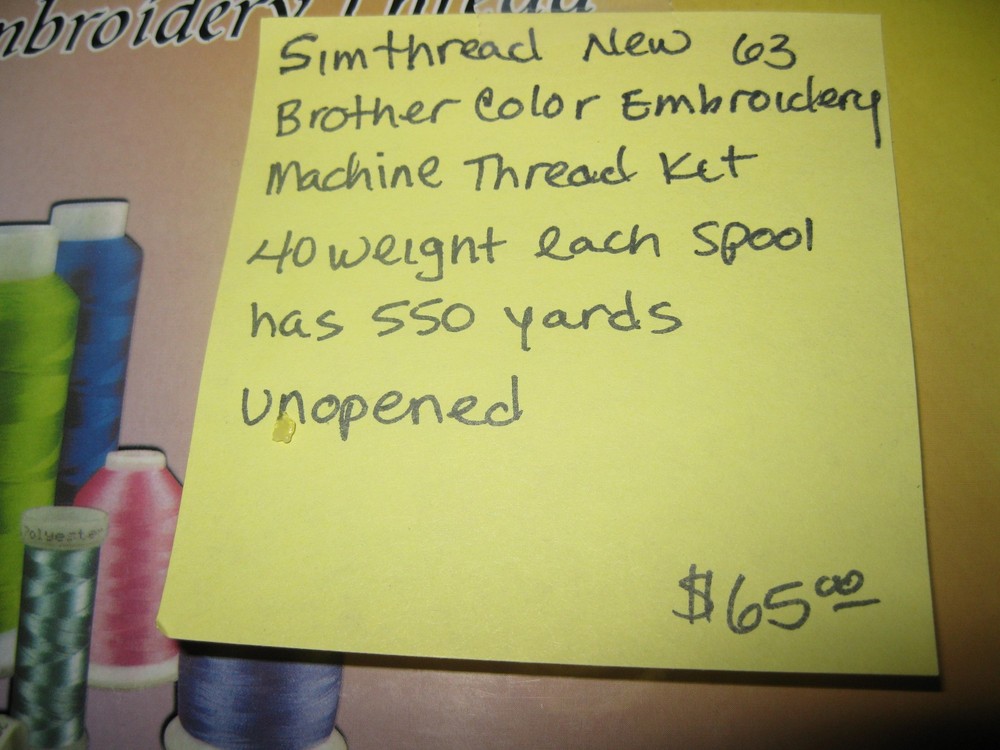 mbroidery Thread
Simthread New 63
Brother Color Embroidery
Machine Thread Kit
40 weight each spool
has 550 yards
unopened
$65.00
Polyester